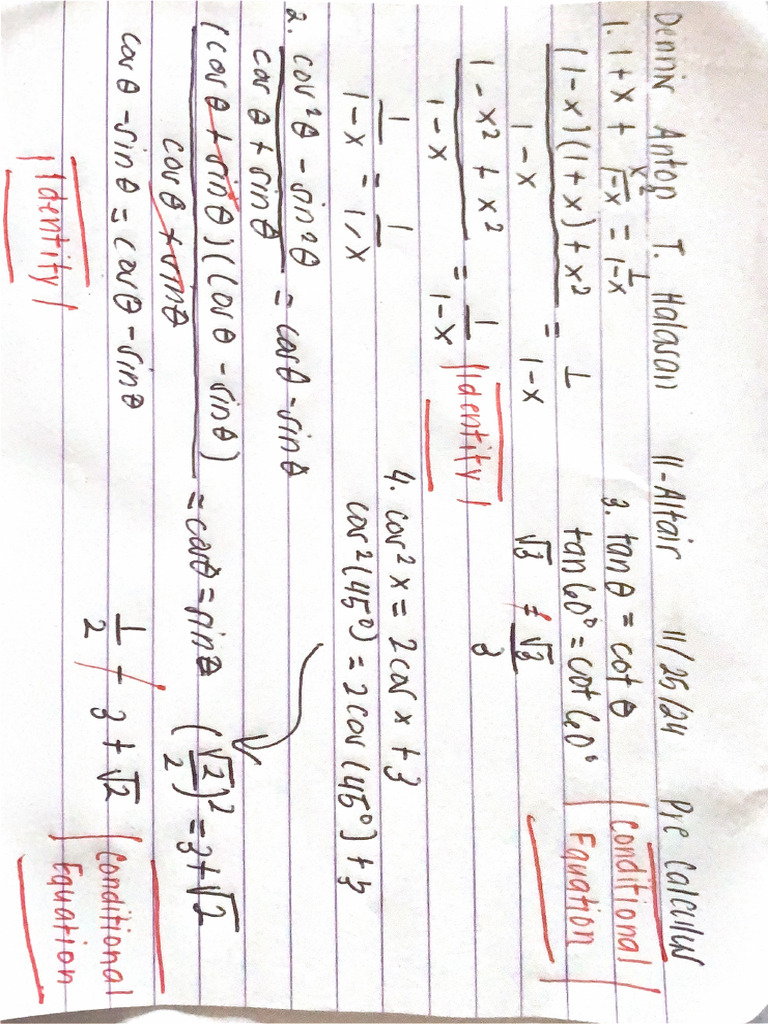 Dennis Anton T. Halasan 11-Altair 11/25/24 Pre Calculus
1. 1+x + x²/1-x = 1/1-x
(1-x)(1+x)+x²/1-x = 1/1-x
1-x²+x²/1-x = 1/1-x
1/1-x = 1/1-x
|Identity|
2. cos²θ - sin²θ/cos θ + sinθ = cosθ - sinθ
(cosθ + sinθ)(cosθ - sinθ)/cosθ + sinθ = cosθ = sinθ
cosθ - sinθ = cosθ - sinθ
|Identity|
3. tanθ = cot θ
tan60° = cot 60°
√3 ≠ √3/3
|Conditional
Equation|
4. cos²x = 2cos x + 3
cos²(45°) = 2cos(45°)+3
(√2/2)² = 3+√2
1/2 ≠ 3+√2
|Conditional
Equation|